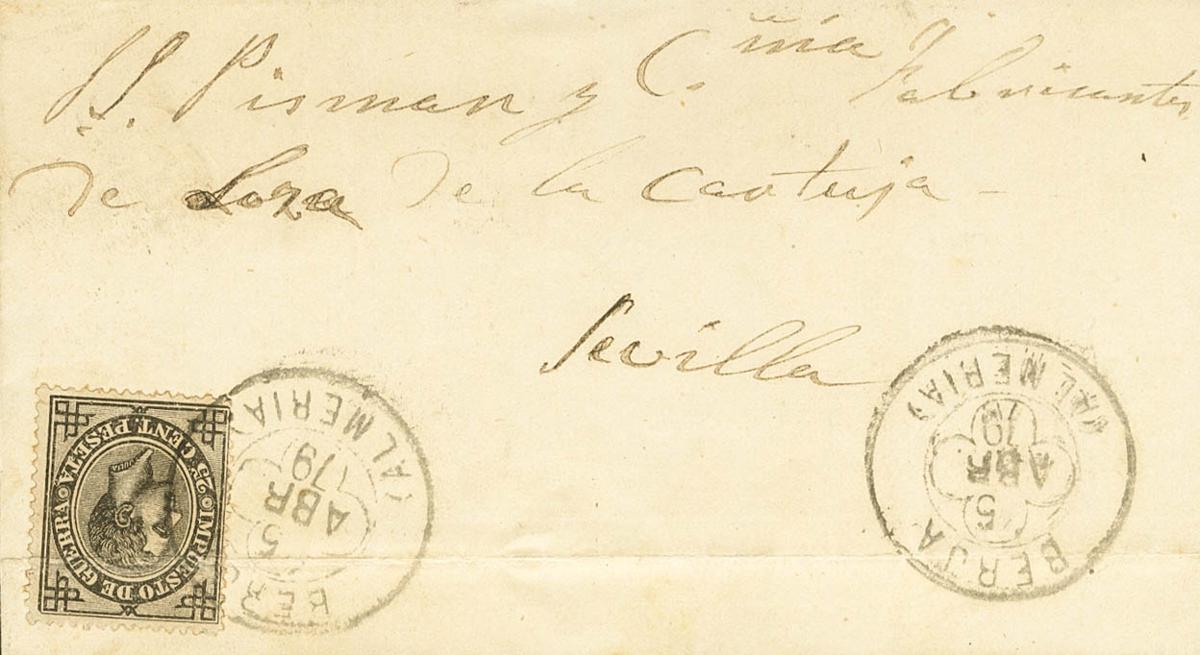 S.S. Pisman y C.ñia Fabricantes
de Loza de la Cartuja -
Sevilla
25 CENT. PESETA
IMPUESTO DE GUERRA
(ALMERIA)
5
ABR
79
BER
BERJA
5
ABR
79
(ALMERIA)